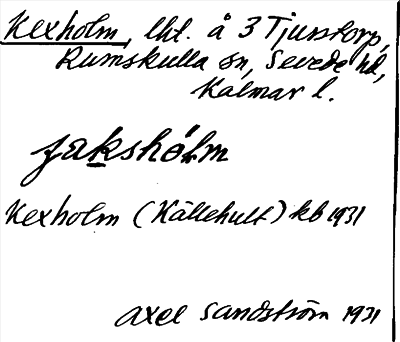 Kexholm, lht. å 3 Tjusstorp,
Rumskulla sn, Sevede hd,
Kalmar l.
jaksholm
Kexholm (Källehult) kb 1931
Axel Sandström 1931